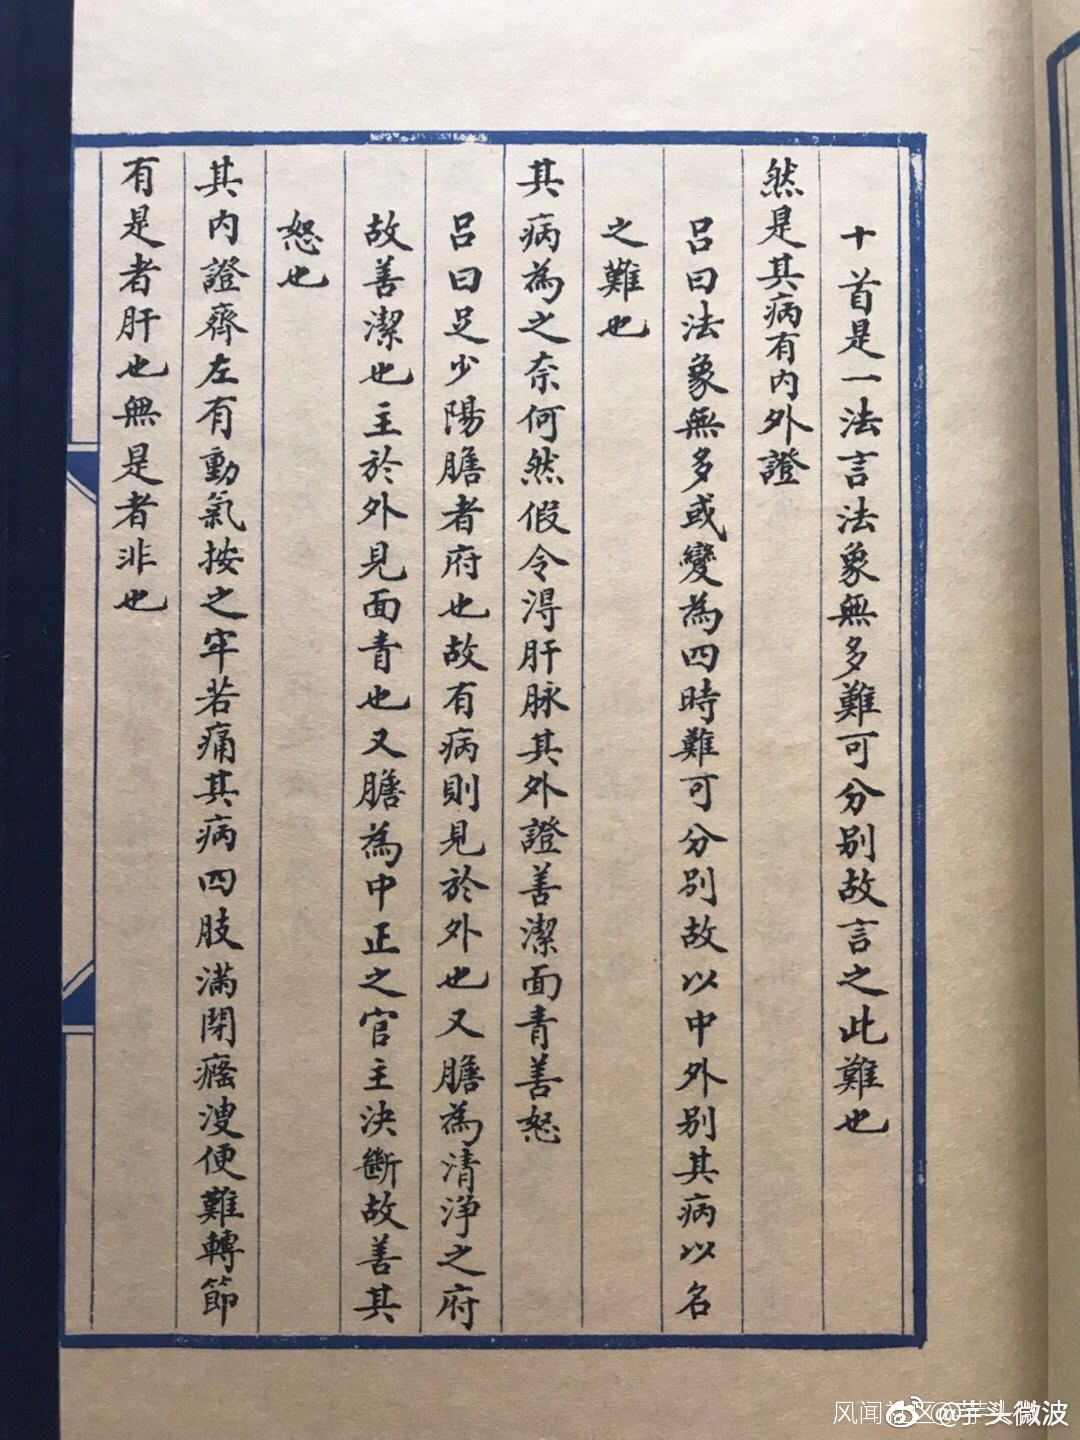 十首是一法言法象無多難可分別故言之此難也
然是其病有內外證
呂曰法象無多或變為四時難可分別故以中外別其病以名
之難也
其病為之奈何然假令淂肝脉其外證善潔面青善怒
呂曰足少陽膽者府也故有病則見於外也又膽為清淨之府
故善潔也主於外見面青也又膽為中正之官主決斷故善其
怒也
其內證齊左有動氣按之牢若痛其病四肢滿閉癃溲便難轉節
有是者肝也無是者非也
风闻社区
@芋头微波